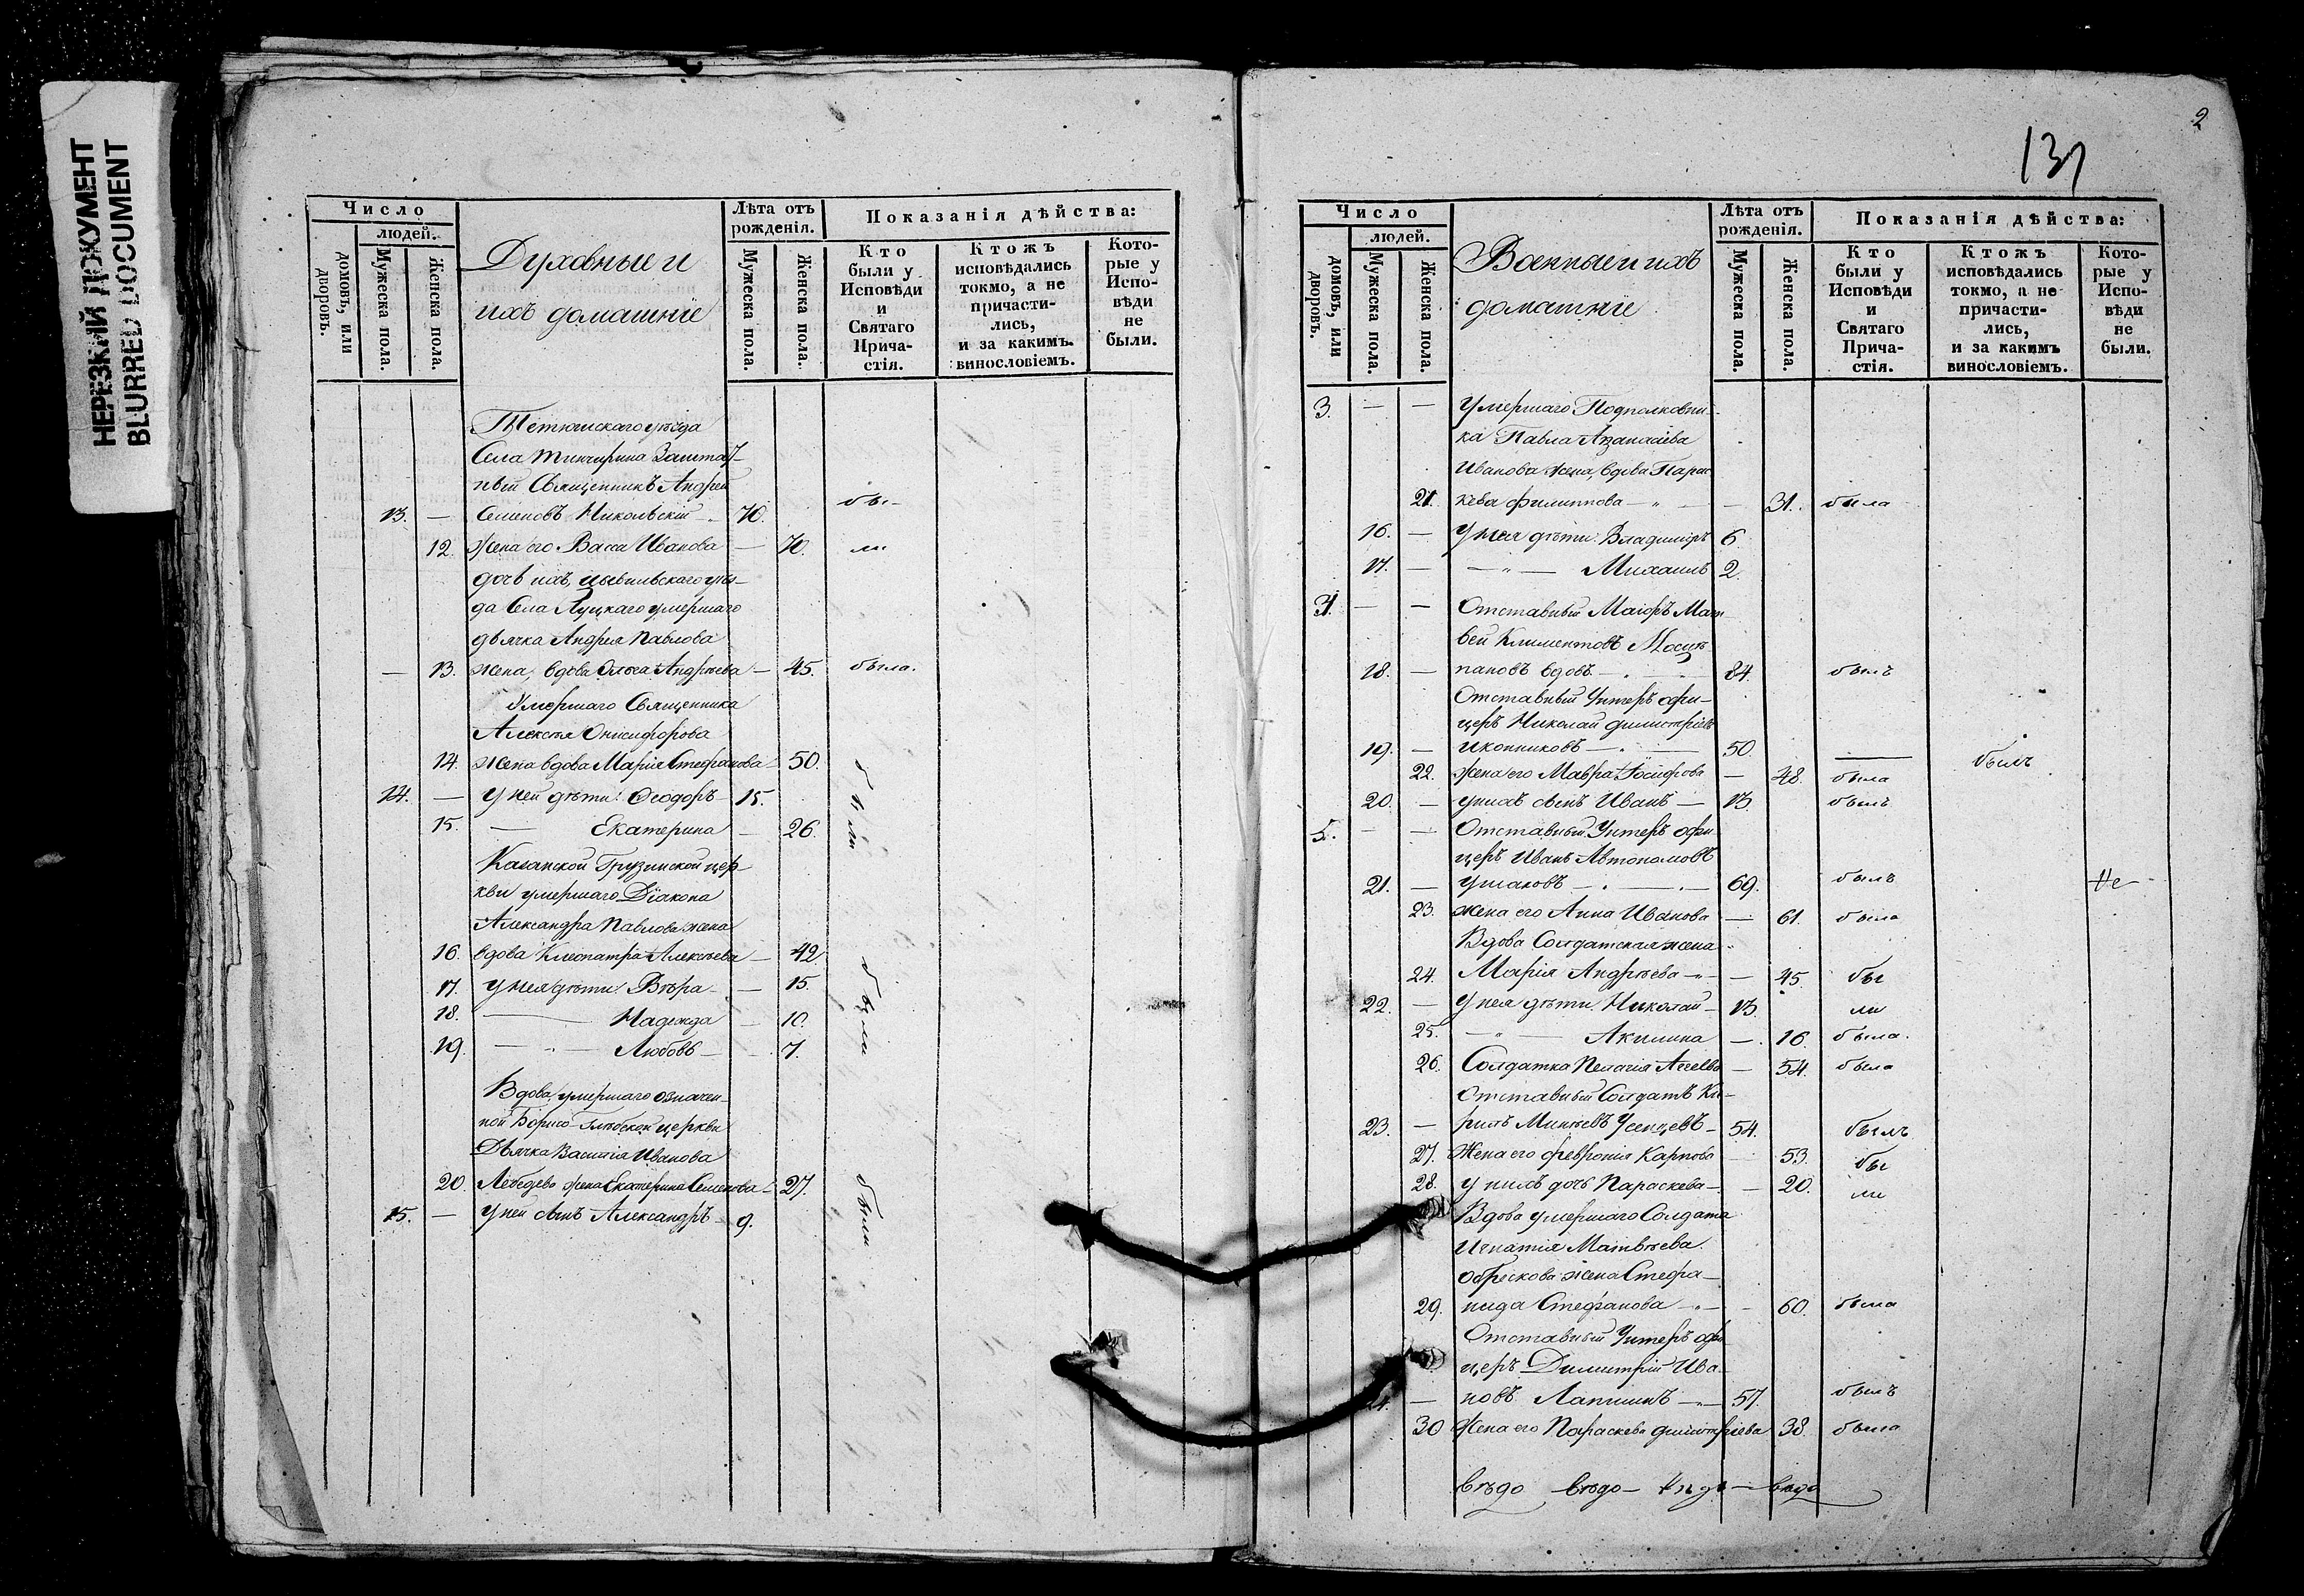 НЕРЕЗКИЙ ДОКУМЕНТ
BLURRED DOCUMENT
Число
людей.
домовъ, или дворовъ.
Мужеска пола.
Женска пола.
Духовные и
ихъ домашніе
Лѣта отъ рожденія.
Мужеска пола.
Женска пола.
Показанія дѣйства:
Кто были у Исповѣди и Святаго Прича-стія.
Ктожъ исповѣдались токмо, а не причасти-лись, и за какимъ винословіемъ.
Кото-рые у Испо-вѣди не были.
Тетюшскаго уѣзда
Села Заштат-
ный Священникъ Андрей
13. — Семеновъ Никольскій — 70. бы-
12. Жена его Васса Иванова — 70. ли
дочь ихъ, цывильскаго уѣз-
да Села умершаго
дьячка Андрея Павлова
— 13. жена, вдова Ольга Андреева — 45. была.
Умершаго Священника
Алексѣя Онисифорова
14. жена вдова Марія Стефанова 50.
14. — У ней дѣти: Ѳеодоръ — 15.
15. — Екатерина — 26. были
Казанской Грузинской цер-
кви умершаго Діакона
Александра Павлова жена
16. вдова Клеопатра Алексѣева — 42
17. У нея дѣти: Вѣра — 15.
18. — Надежда — 10. были
19. — Любовь — 7.
Вдова, умершаго означен-
ной Борисо-Глѣбской церкви
Дьячка Василія Иванова
20. Лебедева жена Екатерина Семенова — 27. были
15. — У ней сынъ Александръ 9.
2
131
Число
людей.
домовъ, или дворовъ.
Мужеска пола.
Женска пола.
Военные и ихъ
домашніе
Лѣта отъ рожденія.
Мужеска пола.
Женска пола.
Показанія дѣйства:
Кто были у Исповѣди и Святаго Прича-стія.
Ктожъ исповѣдались токмо, а не причасти-лись, и за какимъ винословіемъ.
Кото-рые у Испо-вѣди не были.
3. — — Умершаго Подполковни-
ка Павла Аѳанасіева
Иванова жена, вдова Парас-
21. кева Филиппова — 31. была
16. — У нея дѣти: Владиміръ 6.
17. — — Михаилъ 2.
4. — — Отставный Маіоръ Мат-
вей Климентовъ
18. — вдовъ — 84. былъ
Отставный Унтеръ офи-
церъ Николай Димитріевъ
19. — Иконниковъ — 50. — былъ
22. Жена его Мавра Іосифова — 48. была
20. — у нихъ сынъ Иванъ — 13 былъ
5. — — Отставный Унтеръ офи-
церъ Иванъ Автономовъ
21. — Ушаковъ — 69. былъ Не
23. жена его Анна Иванова — 61. была
Вдова Солдатская жена
24. Марія Андреева — 45. бы
22. — У нея дѣти: Николай — 13. ли
25. — Акилина — 16. была.
26. Солдатка Пелагія — 54. была
Отставный Солдатъ Ки-
23. — рилъ Усенцевъ — 54. былъ
27. Жена его Февронія Карпова — 53. бы
28. У нихъ дочь Параскева — 20. ли
Вдова умершаго Солдата
Игнатія Матвѣева
Обрескова жена Стефа-
29. нида Стефанова — 60. была
Отставный Унтеръ офи-
церъ Димитрій Ива-
24. — новъ Лапшинъ — 57. былъ
30 Жена его Параскева Димитріева 38. была